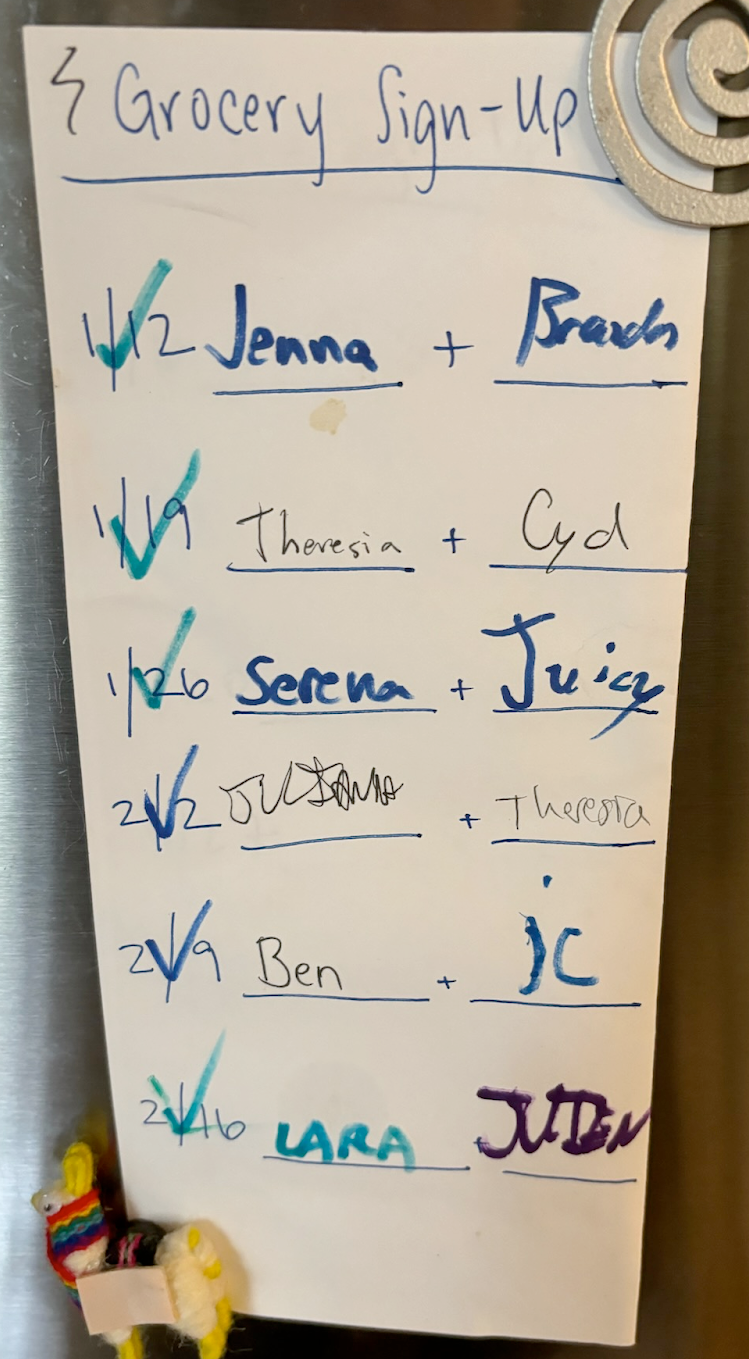 Grocery Sign-Up
1/12 Jenna +
1/19 Theresia + Cyd
1/26 Serena + Juicy
2/2 + Theresia
2/9 Ben + jc
2/16 LARA +